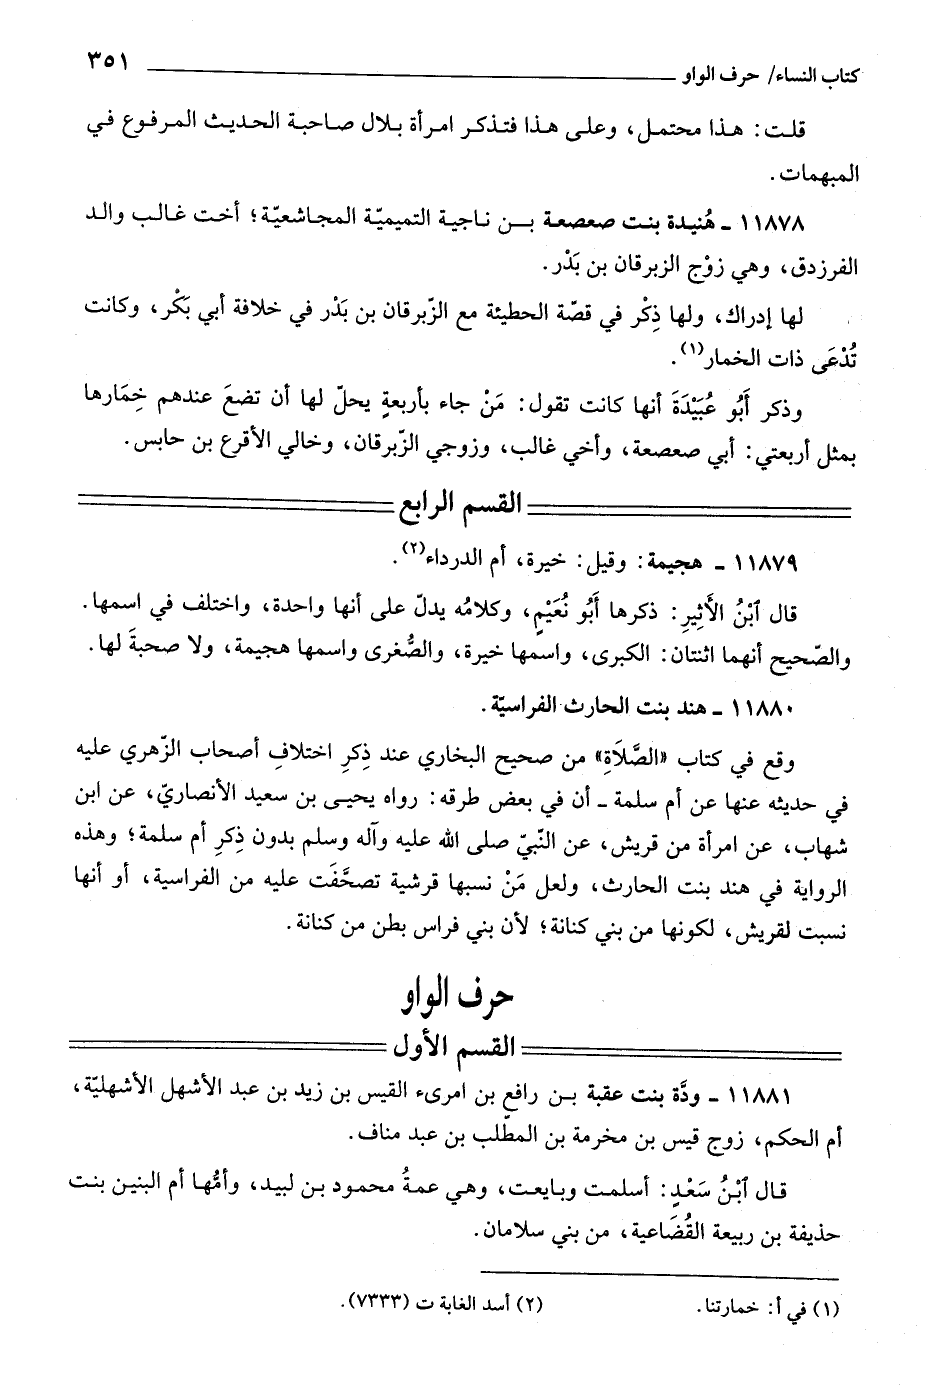 كتاب النساء/ حرف الواو ٣٥١
قلت: هذا محتمل، وعلى هذا فتذكر امرأة بلال صاحبة الحديث المرفوع في
المبهمات.
١١٨٧٨ ـ هُنيدة بنت صعصعة بن ناجية التميميّة المجاشعيّة؛ أخت غالب والد
الفرزدق، وهي زوْج الزبرقان بن بَدْر.
لها إدراك، ولها ذِكْر في قصّة الحطيئة مع الزّبرقان بن بَدْر في خلافة أبي بَكْر، وكانت
تُدْعَى ذات الخمار(١).
وذكر أَبُو عُبَيْدَةَ أنها كانت تقول: مَنْ جاء بأربعةٍ يحلّ لها أن تضعَ عندهم خِمَارها
بمثل أربعتي: أبي صعصعة، وأخي غالب، وزوجي الزّبرقان، وخالي الأقرع بن حابس.
القسم الرابع
١١٨٧٩ ـ هجيمة: وقيل: خيرة، أم الدرداء(٢).
قال ٱبْنُ الأَثِيرِ: ذكرها أَبُو نُعَيْمٍ، وكلامُه يدلّ على أنها واحدة، واختلف في اسمها.
والصّحيح أنهما اثنتان: الكبرى، واسمها خيرة، والصُّغرى واسمها هجيمة، ولا صحبةَ لها.
١١٨٨٠ ـ هند بنت الحارث الفراسيّة.
وقع في كتاب «الصَّلَاةِ» من صحيح البخاري عند ذِكرِ اختلافِ أصحاب الزّهري عليه
في حديثه عنها عن أم سلمة ـ أن في بعض طرقه: رواه يحيى بن سعيد الأنصاريّ، عن ابن
شهاب، عن امرأة من قريش، عن النّبيّ صلى الله عليه وآله وسلم بدون ذِكرِ أم سلمة؛ وهذه
الرواية في هند بنت الحارث، ولعل مَنْ نسبها قرشية تصحَّفَت عليه من الفراسية، أو أنها
نسبت لقريش، لكونها من بني كنانة؛ لأن بني فراس بطن من كنانة.
حرف الواو
القسم الأول
١١٨٨١ ـ ودَّة بنت عقبة بن رافع بن امرىء القيس بن زيد بن عبد الأشهل الأشهليّة،
أم الحكم، زوج قيس بن مخرمة بن المطّلب بن عبد مناف.
قال ٱبْنُ سَعْدٍ: أسلمت وبايعت، وهي عمةُ محمود بن لبيد، وأمُّها أم البنين بنت
حذيفة بن ربيعة القُضَاعية، من بني سلامان.
(١) في أ: خمارتنا. (٢) أسد الغابة ت (٧٣٣٣).